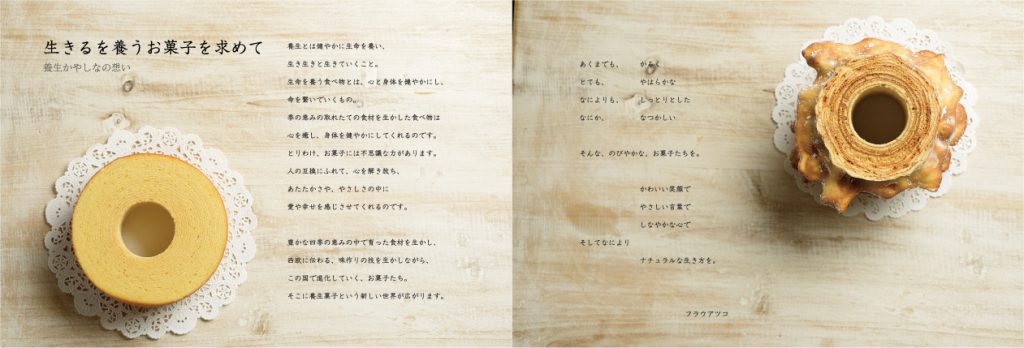 生きるを養うお菓子を求めて
養生かやしなの想い
養生とは健やかに生命を養い、
生き生きと生きていくこと。
生命を養う食べ物とは、心と身体を健やかにし、
命を繋いでいくもの。
季の恵みの取れたての食材を生かした食べ物は
心を癒し、身体を健やかにしてくれるのです。
とりわけ、お菓子には不思議な力があります。
人の五感にふれて、心を解き放ち、
あたたかさや、やさしさの中に
愛や幸せを感じさせてくれるのです。
豊かな四季の恵みの中で育った食材を生かし、
西欧に伝わる、味作りの技を生かしながら、
この国で進化していく、お菓子たち。
そこに養生菓子という新しい世界が広がります。
あくまでも、 かるく
とても、 やはらかな
なによりも、 しっとりとした
なにか、 なつかしい
そんな、のびやかな、お菓子たちを。
かわいい笑顔で
やさしい言葉で
しなやかな心で
そしてなにより
ナチュラルな生き方を。
フラウアツコ